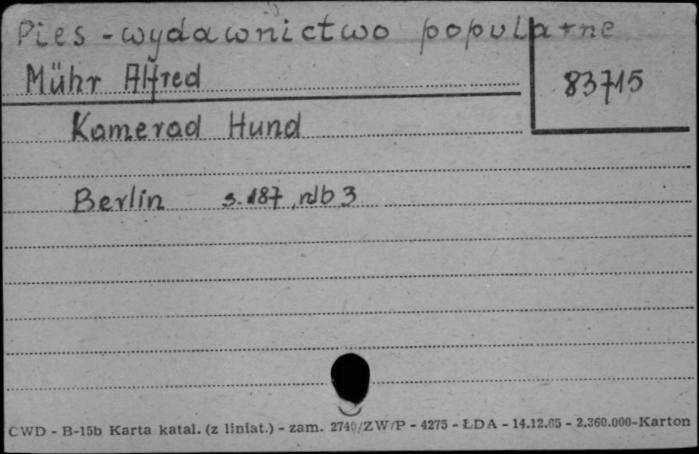 Pies - wydawnictwo popularne
Mühr Alfred
83715
Kamerad Hund
Berlin s. 187, nlb 3
CWD - B-15b Karta katal. (z liniat.) - zam. 2740/ZW/P - 4275 - ŁDA - 14.12.65 - 2.360.000-Karton